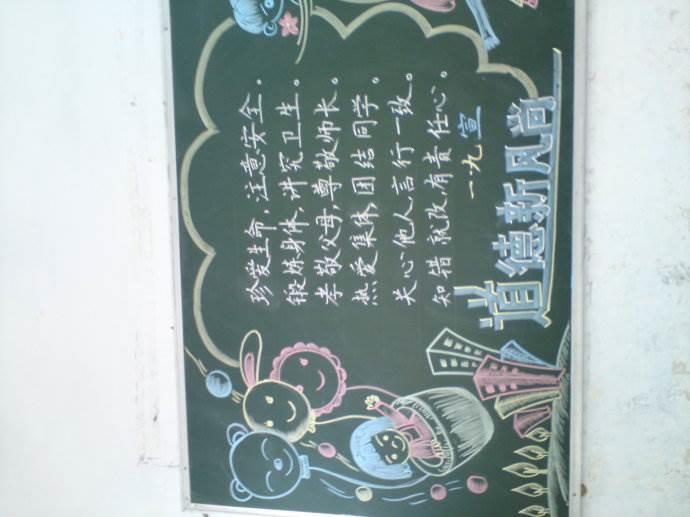 珍爱生命，注意安全。
锻炼身体，讲究卫生。
孝敬父母，尊敬师长。
热爱集体，团结同学。
关心他人，言行一致。
知错就改，有责任心。
一九 宣
道德新风尚